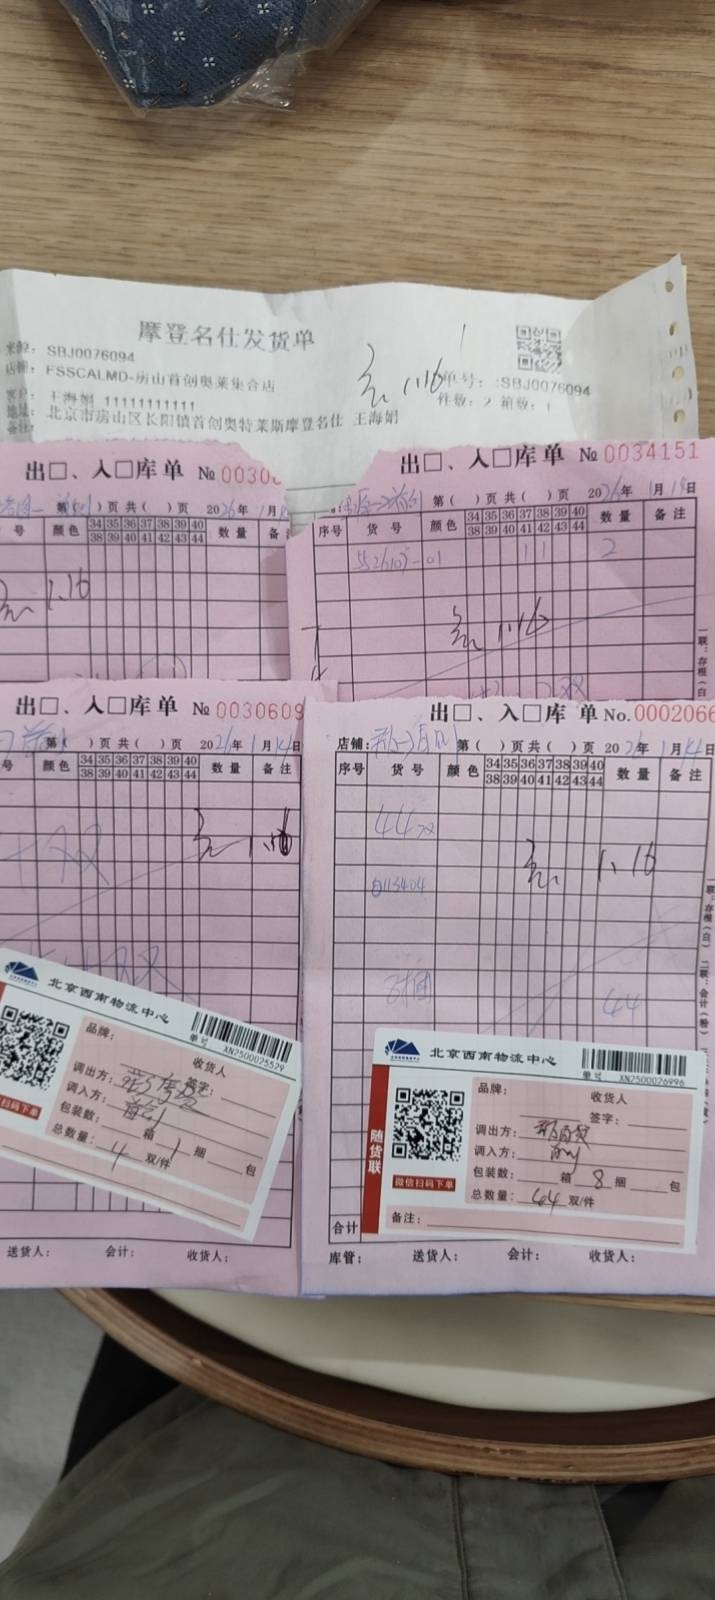 摩登名仕发货单
SBJ0076094
单号: :SBJ0076094
店铺: FSSCALMD-房山首创奥莱集合店
1.16
件数: 2 箱数: 1
客户: 王海娟 11111111111
地址: 北京市房山区长阳镇首创奥特莱斯摩登名仕 王海娟
备注:
出□、入□库单 № 0030
第( )页 共( )页 2026年 1月
号 颜色 34 35 36 37 38 39 40 数量 备
38 39 40 41 42 43 44
1.16
出□、入□库单 № 0034151
第( )页 共( )页 2026年 1月 日
序号 货号 颜色 34 35 36 37 38 39 40 数量 备注
38 39 40 41 42 43 44
-01 1 1 2
1.16
出□、入□库单 № 0030609
第( )页 共( )页 2026年 1月14日
号 颜色 34 35 36 37 38 39 40 数量 备注
38 39 40 41 42 43 44
1.16
北京西南物流中心
单号 XN2500025529
品牌:
收货人
签字:
调出方:
调入方: 首创
包装数: 箱 1 捆 包
总数量: 4 双/件
扫码下单
送货人: 会计: 收货人:
出□、入□库单 No. 0002066
店铺: 第( )页 共( )页 2026年 1月14日
序号 货号 颜色 34 35 36 37 38 39 40 数量 备注
38 39 40 41 42 43 44
44双
1.16
8捆 44
北京西南物流中心
单号 XN2500026996
品牌:
收货人
签字:
调出方:
调入方:
包装数: 箱 8 捆 包
总数量: 44 双/件
备注:
随货联
微信扫码下单
合计
库管: 送货人: 会计: 收货人: